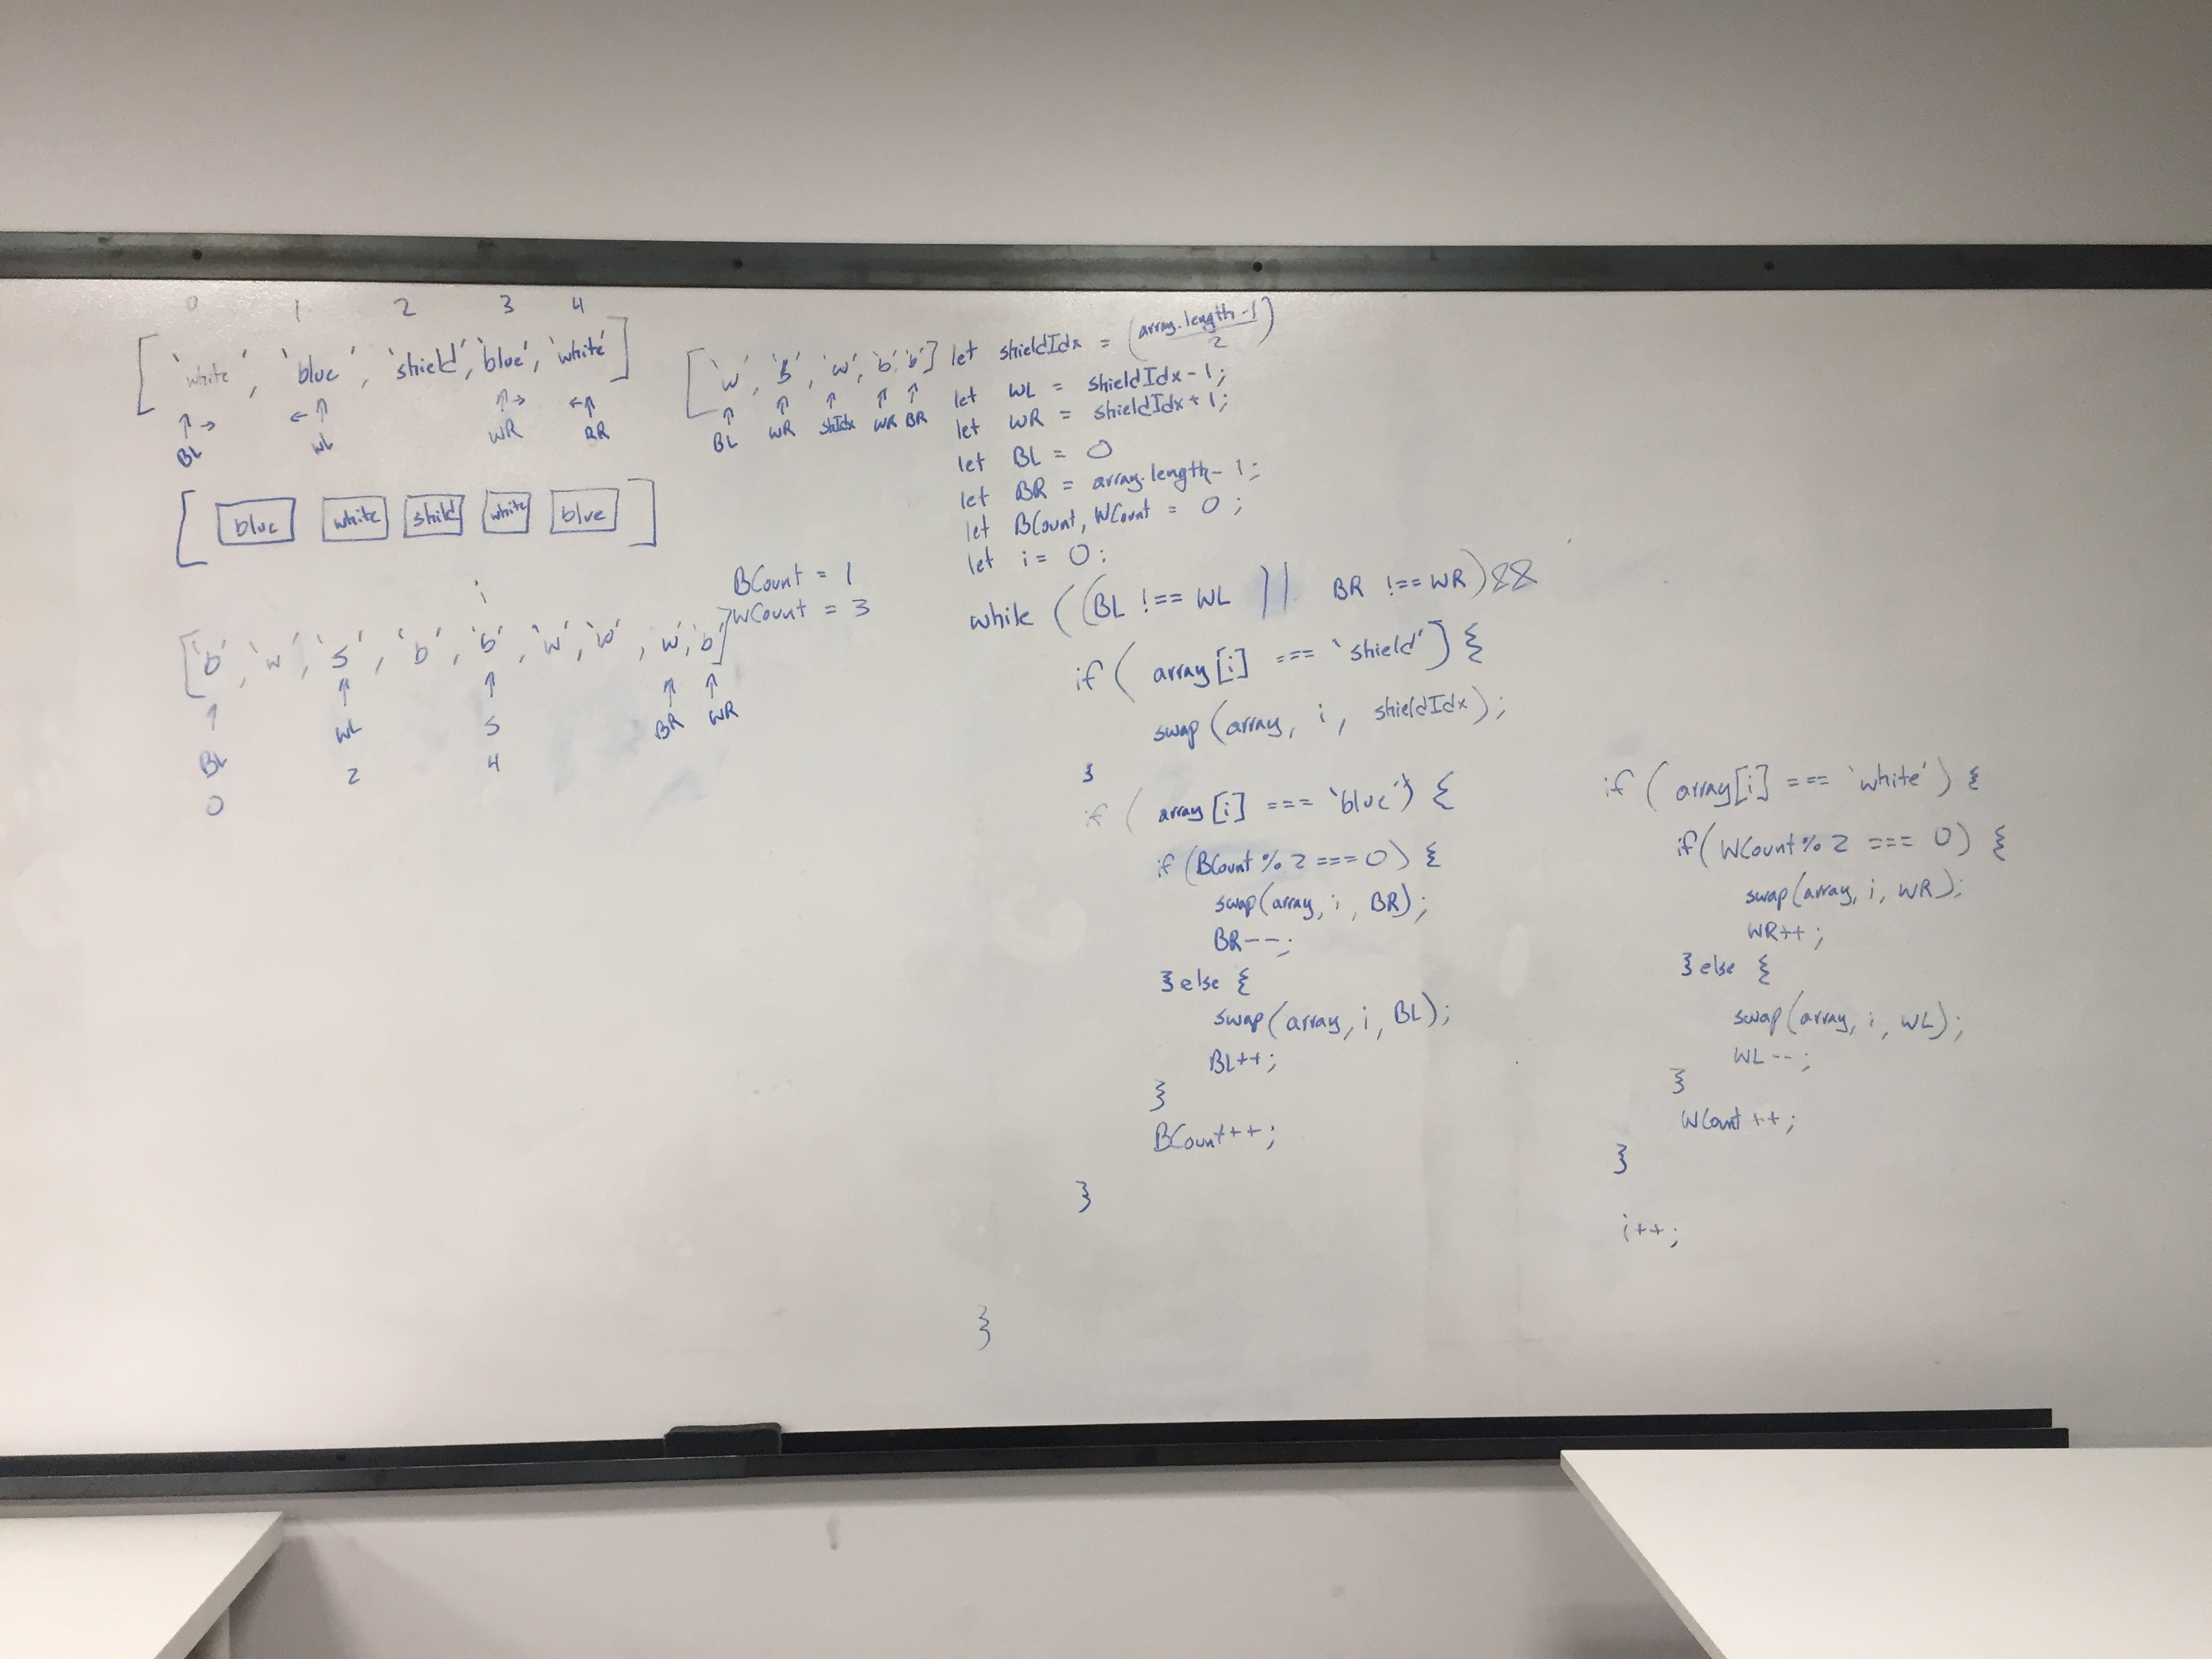 0 1 2 3 4
['white', 'blue', 'shield', 'blue', 'white']
BL WL WR BR
[ blue white shild white blue ]
i
['b', 'w', 's', 'b', 'b', 'w', 'w', w', 'b']
BL WL S BR WR
0 2 4
BCount = 1
WCount = 3
['w', 'w', 'b', 'b']
BL WR shIdx WR BR
let shieldIdx = (array.length-1 / 2)
let WL = shieldIdx-1;
let WR = shieldIdx+1;
let BL = 0
let BR = array.length-1;
let BCount, WCount = 0;
let i = 0;
while ((BL !== WL || BR !== WR) &&
if ( array[i] === 'shield') {
swap (array, i, shieldIdx);
}
if ( array[i] === 'blue') {
if (BCount % 2 === 0) {
swap(array, i, BR);
BR--;
} else {
swap(array, i, BL);
BL++;
}
BCount++;
}
if ( array[i] === 'white') {
if (WCount % 2 === 0) {
swap(array, i, WR);
WR++;
} else {
swap(array, i, WL);
WL--;
}
WCount++;
}
i++;
}